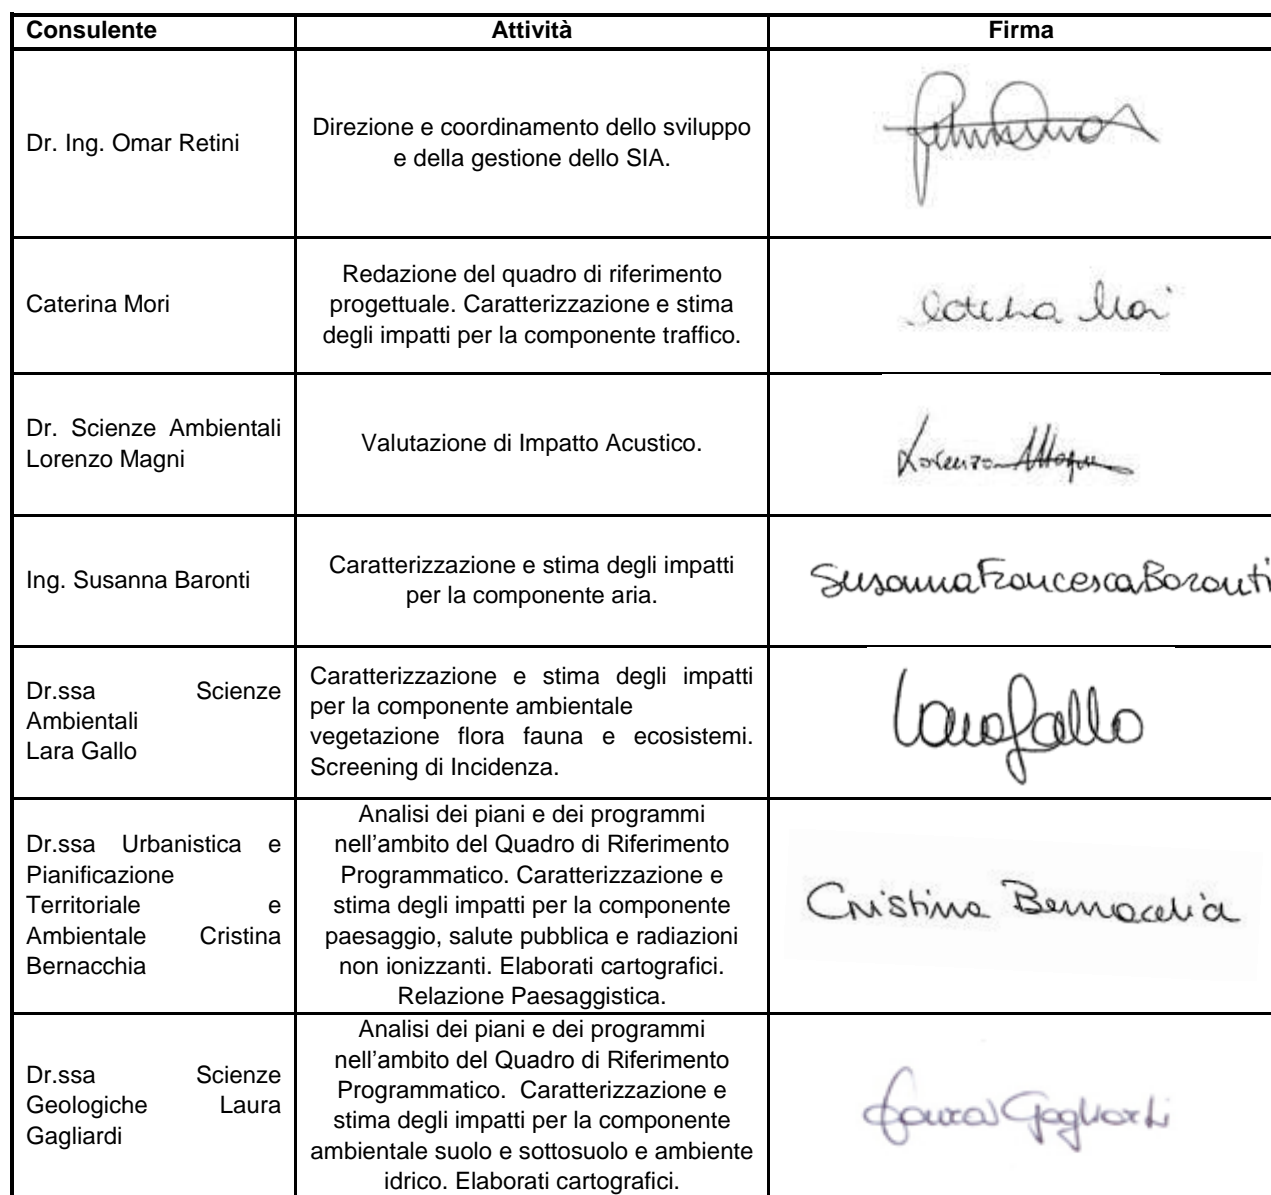 Consulente Attività Firma
Dr. Ing. Omar Retini
Direzione e coordinamento dello sviluppo
e della gestione dello SIA.
Caterina Mori
Redazione del quadro di riferimento
progettuale. Caratterizzazione e stima
degli impatti per la componente traffico.
Caterina Mori
Dr. Scienze Ambientali
Lorenzo Magni
Valutazione di Impatto Acustico.
Lorenzo Magni
Ing. Susanna Baronti
Caratterizzazione e stima degli impatti
per la componente aria.
Susanna Francesca Baronti
Dr.ssa Scienze
Ambientali
Lara Gallo
Caratterizzazione e stima degli impatti
per la componente ambientale
vegetazione flora fauna e ecosistemi.
Screening di Incidenza.
Lara Gallo
Dr.ssa Urbanistica e
Pianificazione
Territoriale e
Ambientale Cristina
Bernacchia
Analisi dei piani e dei programmi
nell’ambito del Quadro di Riferimento
Programmatico. Caratterizzazione e
stima degli impatti per la componente
paesaggio, salute pubblica e radiazioni
non ionizzanti. Elaborati cartografici.
Relazione Paesaggistica.
Cristina Bernacchia
Dr.ssa Scienze
Geologiche Laura
Gagliardi
Analisi dei piani e dei programmi
nell’ambito del Quadro di Riferimento
Programmatico. Caratterizzazione e
stima degli impatti per la componente
ambientale suolo e sottosuolo e ambiente
idrico. Elaborati cartografici.
Laura Gagliardi